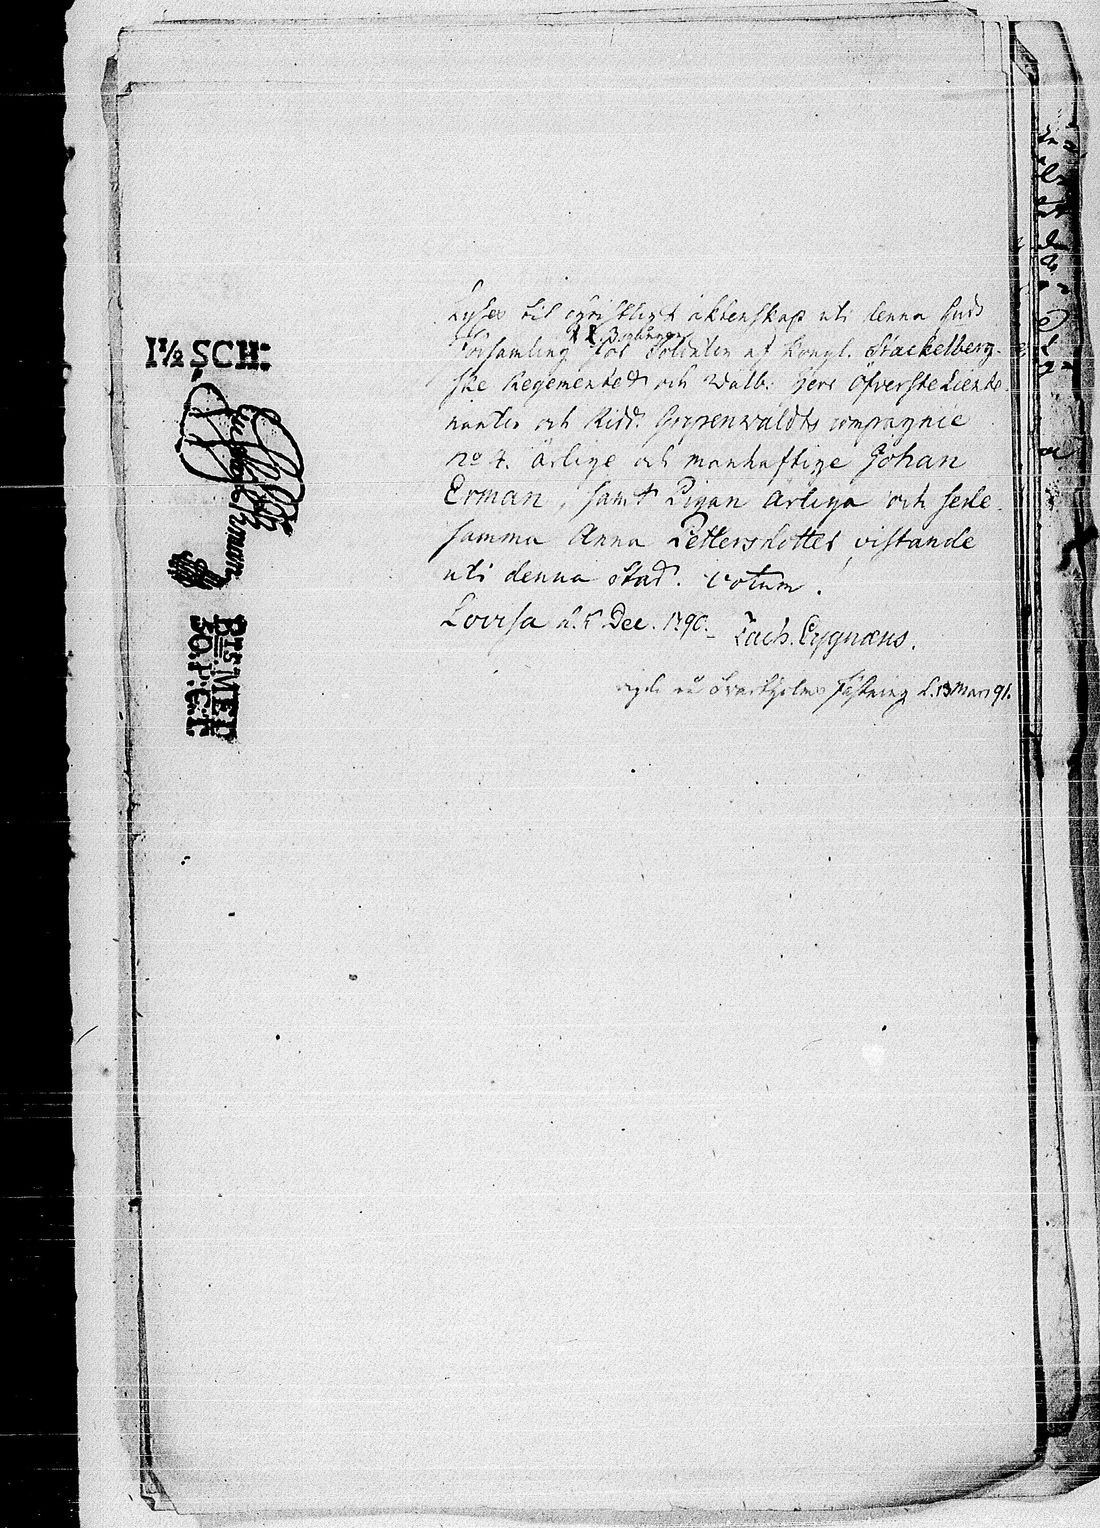 I½ SCH:
Lyses til christligt äktenskap uti denna Guds
församling för Soldaten af Kongl. Stackelberg-
ske Regementet och Välb. Herr Öfverste Lieute-
nanten och Ridd. Grippenwaldts compagnie
No 7. ärlige och manhaftige Johan
Erman, samt Pigan ärliga och sede-
samma Anna Pettersdotter vistande
uti denna Stad. Votum.
Lovisa d. 5 Dec. 1790. Zach. Cygnæus.
Svartholms fästning d. 13 Mars 91.